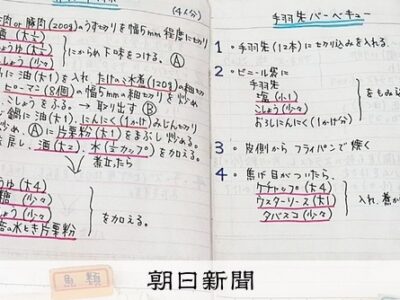 (4人分)
肉or豚肉(200g)のうす切りを幅5mm程度に切り
酒(大½)
しょうゆ(大½)
しょう(少々)
にからめ下味をつける。Ⓐ
に油(大1)を入れ、たけのこ水煮(120g)の細切
ピーマン(8個)の幅5mmの細切りを炒め
こしょうをふる。→取り出す Ⓑ
鍋に油(大1)、にんにく(1かけ)みじん切り
炒め、Ⓐに片栗粉(大1)をまぶし炒め
戻し、酒(大2)、水(½カップ)を加える。
煮立ったら
うゆ(大4)
糖(少々)
しょう(少々)
量の水とき片栗粉
を加える。
手羽先バーベキュー
1・手羽先(12本)に切り込みを入れる
2・ビニール袋に
手羽先
塩(小1)
こしょう(少々)
おろしにんにく(1かけ分)
をもみ込
3・皮側からフライパンで焼く
4・焦げ目がついたら、
ケチャップ(大4)
ウスターソース(大1)
タバスコ(少々)
入れ、煮か
魚類
朝日新聞